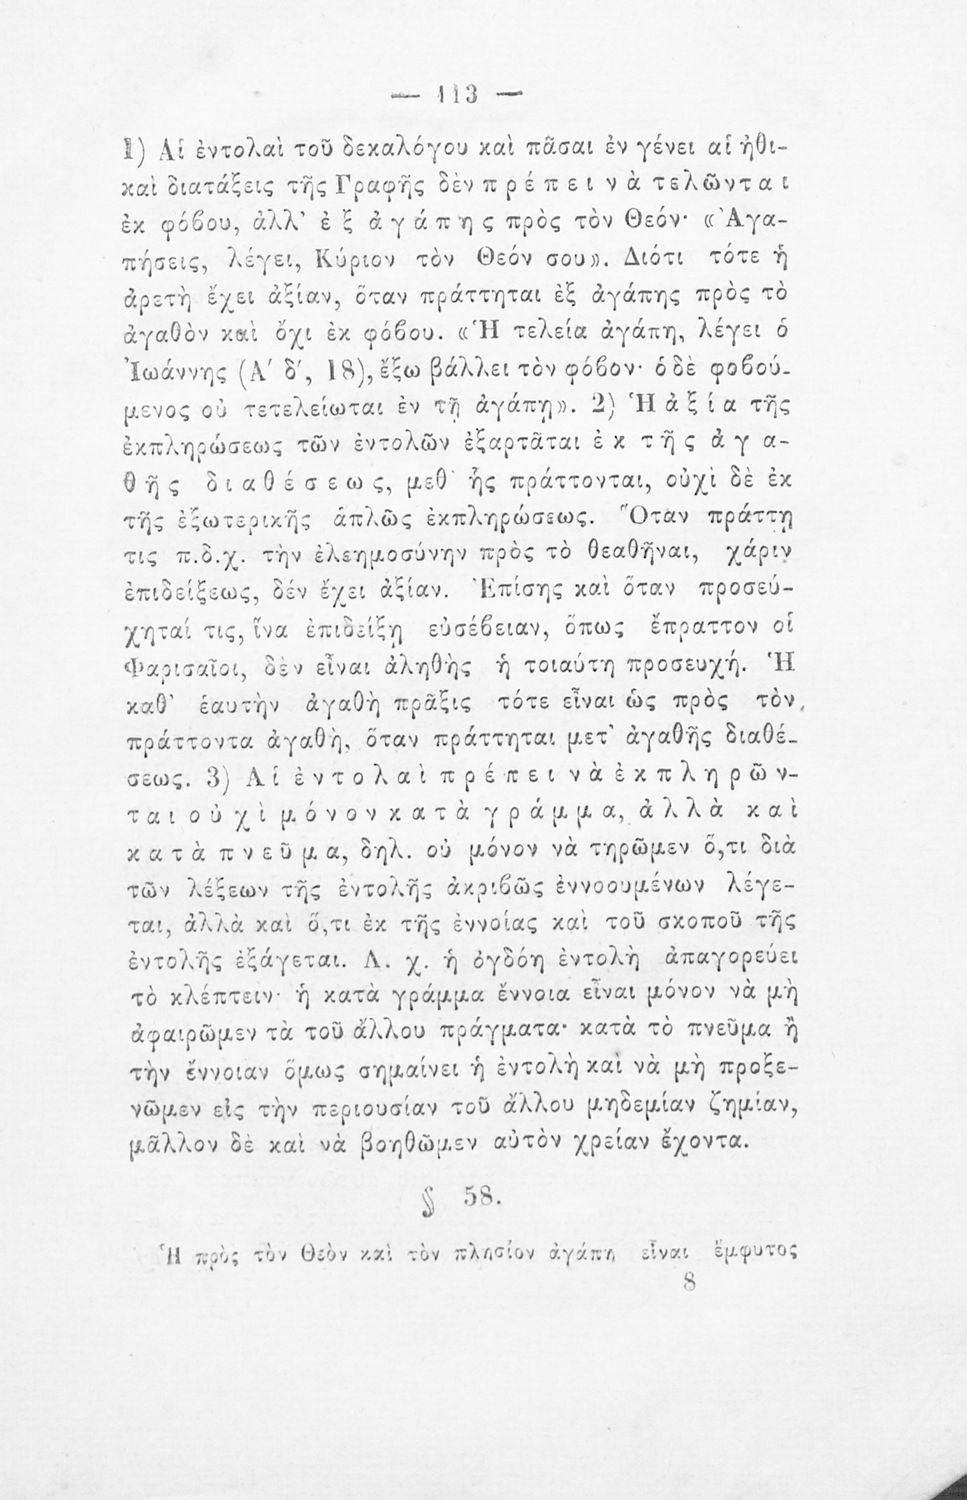 — 113 —
1) Αἱ ἐντολαὶ τοῦ δεκαλόγου καὶ πᾶσαι ἐν γένει αἱ ἠθι-
καὶ διατάξεις τῆς Γραφῆς δὲν πρέπει νὰ τελῶνται
ἐκ φόβου, ἀλλ' ἐξ ἀγάπης πρὸς τὸν Θεόν· «Ἀγα-
πήσεις, λέγει, Κύριον τὸν Θεόν σου». Διότι τότε ἡ
ἀρετὴ ἔχει ἀξίαν, ὅταν πράττηται ἐξ ἀγάπης πρὸς τὸ
ἀγαθὸν καὶ ὄχι ἐκ φόβου. «Ἡ τελεία ἀγάπη, λέγει ὁ
Ἰωάννης (Α' δ', 18), ἔξω βάλλει τὸν φόβον· ὁ δὲ φοβού-
μενος οὐ τετελείωται ἐν τῇ ἀγάπῃ». 2) Ἡ ἀξία τῆς
ἐκπληρώσεως τῶν ἐντολῶν ἐξαρτᾶται ἐκ τῆς ἀγα-
θῆς διαθέσεως, μεθ' ἧς πράττονται, οὐχὶ δὲ ἐκ
τῆς ἐξωτερικῆς ἁπλῶς ἐκπληρώσεως. Ὅταν πράττῃ
τις π.δ.χ. τὴν ἐλεημοσύνην πρὸς τὸ θεαθῆναι, χάριν
ἐπιδείξεως, δέν ἔχει ἀξίαν. Ἐπίσης καὶ ὅταν προσεύ-
χηταί τις, ἵνα ἐπιδείξῃ εὐσέβειαν, ὅπως ἔπραττον οἱ
Φαρισαῖοι, δὲν εἶναι ἀληθὴς ἡ τοιαύτη προσευχή. Ἡ
καθ' ἑαυτὴν ἀγαθὴ πρᾶξις τότε εἶναι ὡς πρὸς τὸν
πράττοντα ἀγαθὴ, ὅταν πράττηται μετ' ἀγαθῆς διαθέ-
σεως. 3) Αἱ ἐντολαὶ πρέπει νὰ ἐκπληρῶν-
ται οὐχὶ μόνον κατὰ γράμμα, ἀλλὰ καὶ
κατὰ πνεῦμα, δηλ. οὐ μόνον νὰ τηρῶμεν ὅ,τι διὰ
τῶν λέξεων τῆς ἐντολῆς ἀκριβῶς ἐννοουμένων λέγε-
ται, ἀλλὰ καὶ ὅ,τι ἐκ τῆς ἐννοίας καὶ τοῦ σκοποῦ τῆς
ἐντολῆς ἐξάγεται. Λ. χ. ἡ ὀγδόη ἐντολὴ ἀπαγορεύει
τὸ κλέπτειν· ἡ κατὰ γράμμα ἔννοια εἶναι μόνον νὰ μὴ
ἀφαιρῶμεν τὰ τοῦ ἄλλου πράγματα· κατὰ τὸ πνεῦμα ἢ
τὴν ἔννοιαν ὅμως σημαίνει ἡ ἐντολὴ καὶ νὰ μὴ προξε-
νῶμεν εἰς τὴν περιουσίαν τοῦ ἄλλου μηδεμίαν ζημίαν,
μᾶλλον δὲ καὶ νὰ βοηθῶμεν αὐτὸν χρείαν ἔχοντα.
§ 58.
Ἡ πρὸς τὸν Θεὸν καὶ τὸν πλησίον ἀγάπη εἶναι ἔμφυτος
8